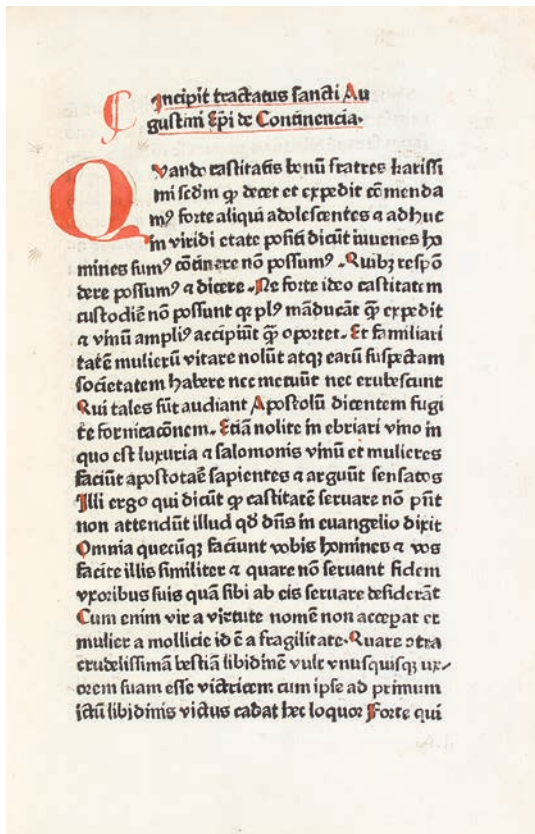 Incipit tractatus sancti Au
gustini Ep̄i de Continencia.
QVando castitatis bonū fratres karissi
mi scd̄m qꝫ decet et expedit cōmenda
mꝰ forte aliqui adolescentes ⁊ adhuc
in viridi etate positi dicūt iuuenes ho
mines sumꝰ cōtinere nō possumꝰ . Quibꝫ respō
dere possumꝰ ⁊ dicere . Ne forte ideo castitatem
custodiē nō possunt qꝛ plꝰ māducāt qꝫ̄ expedit
⁊ vinū ampliꝰ accipiūt qꝫ̄ oportet . Et familiari
tatē mulierū vitare nolūt atqꝫ earū suspectam
societatem habere nec metuūt nec erubescunt
Qui tales sūt audiant Apostolū dicentem fugi
te fornicacōnem . Etiā nolite in ebriari vino in
quo est luxuria ⁊ salomonis vinū et mulieres
faciūt apostotaē sapientes ⁊ arguūt sensatos
Illi ergo qui dicūt qꝫ castitatē seruare nō pn̄t
non attendūt illud qd̄ dn̄s in euangelio dixit
Omnia quecūqꝫ faciunt vobis homines ⁊ vos
facite illis similiter ⁊ quare nō seruant fidem
vxoribus suis quā sibi ab eis seruare desiderāt
Cum enim vir a virtute nomē non accepat et
mulier a mollicie id ē a fragilitate. Quare ↄtra
crudelissimā bestiā libidinē vult vnusquisqꝫ ux⸗
orem suam esse victricem cum ipse ad primum
ictū libidinis victus cadat hec loquor Forte qui